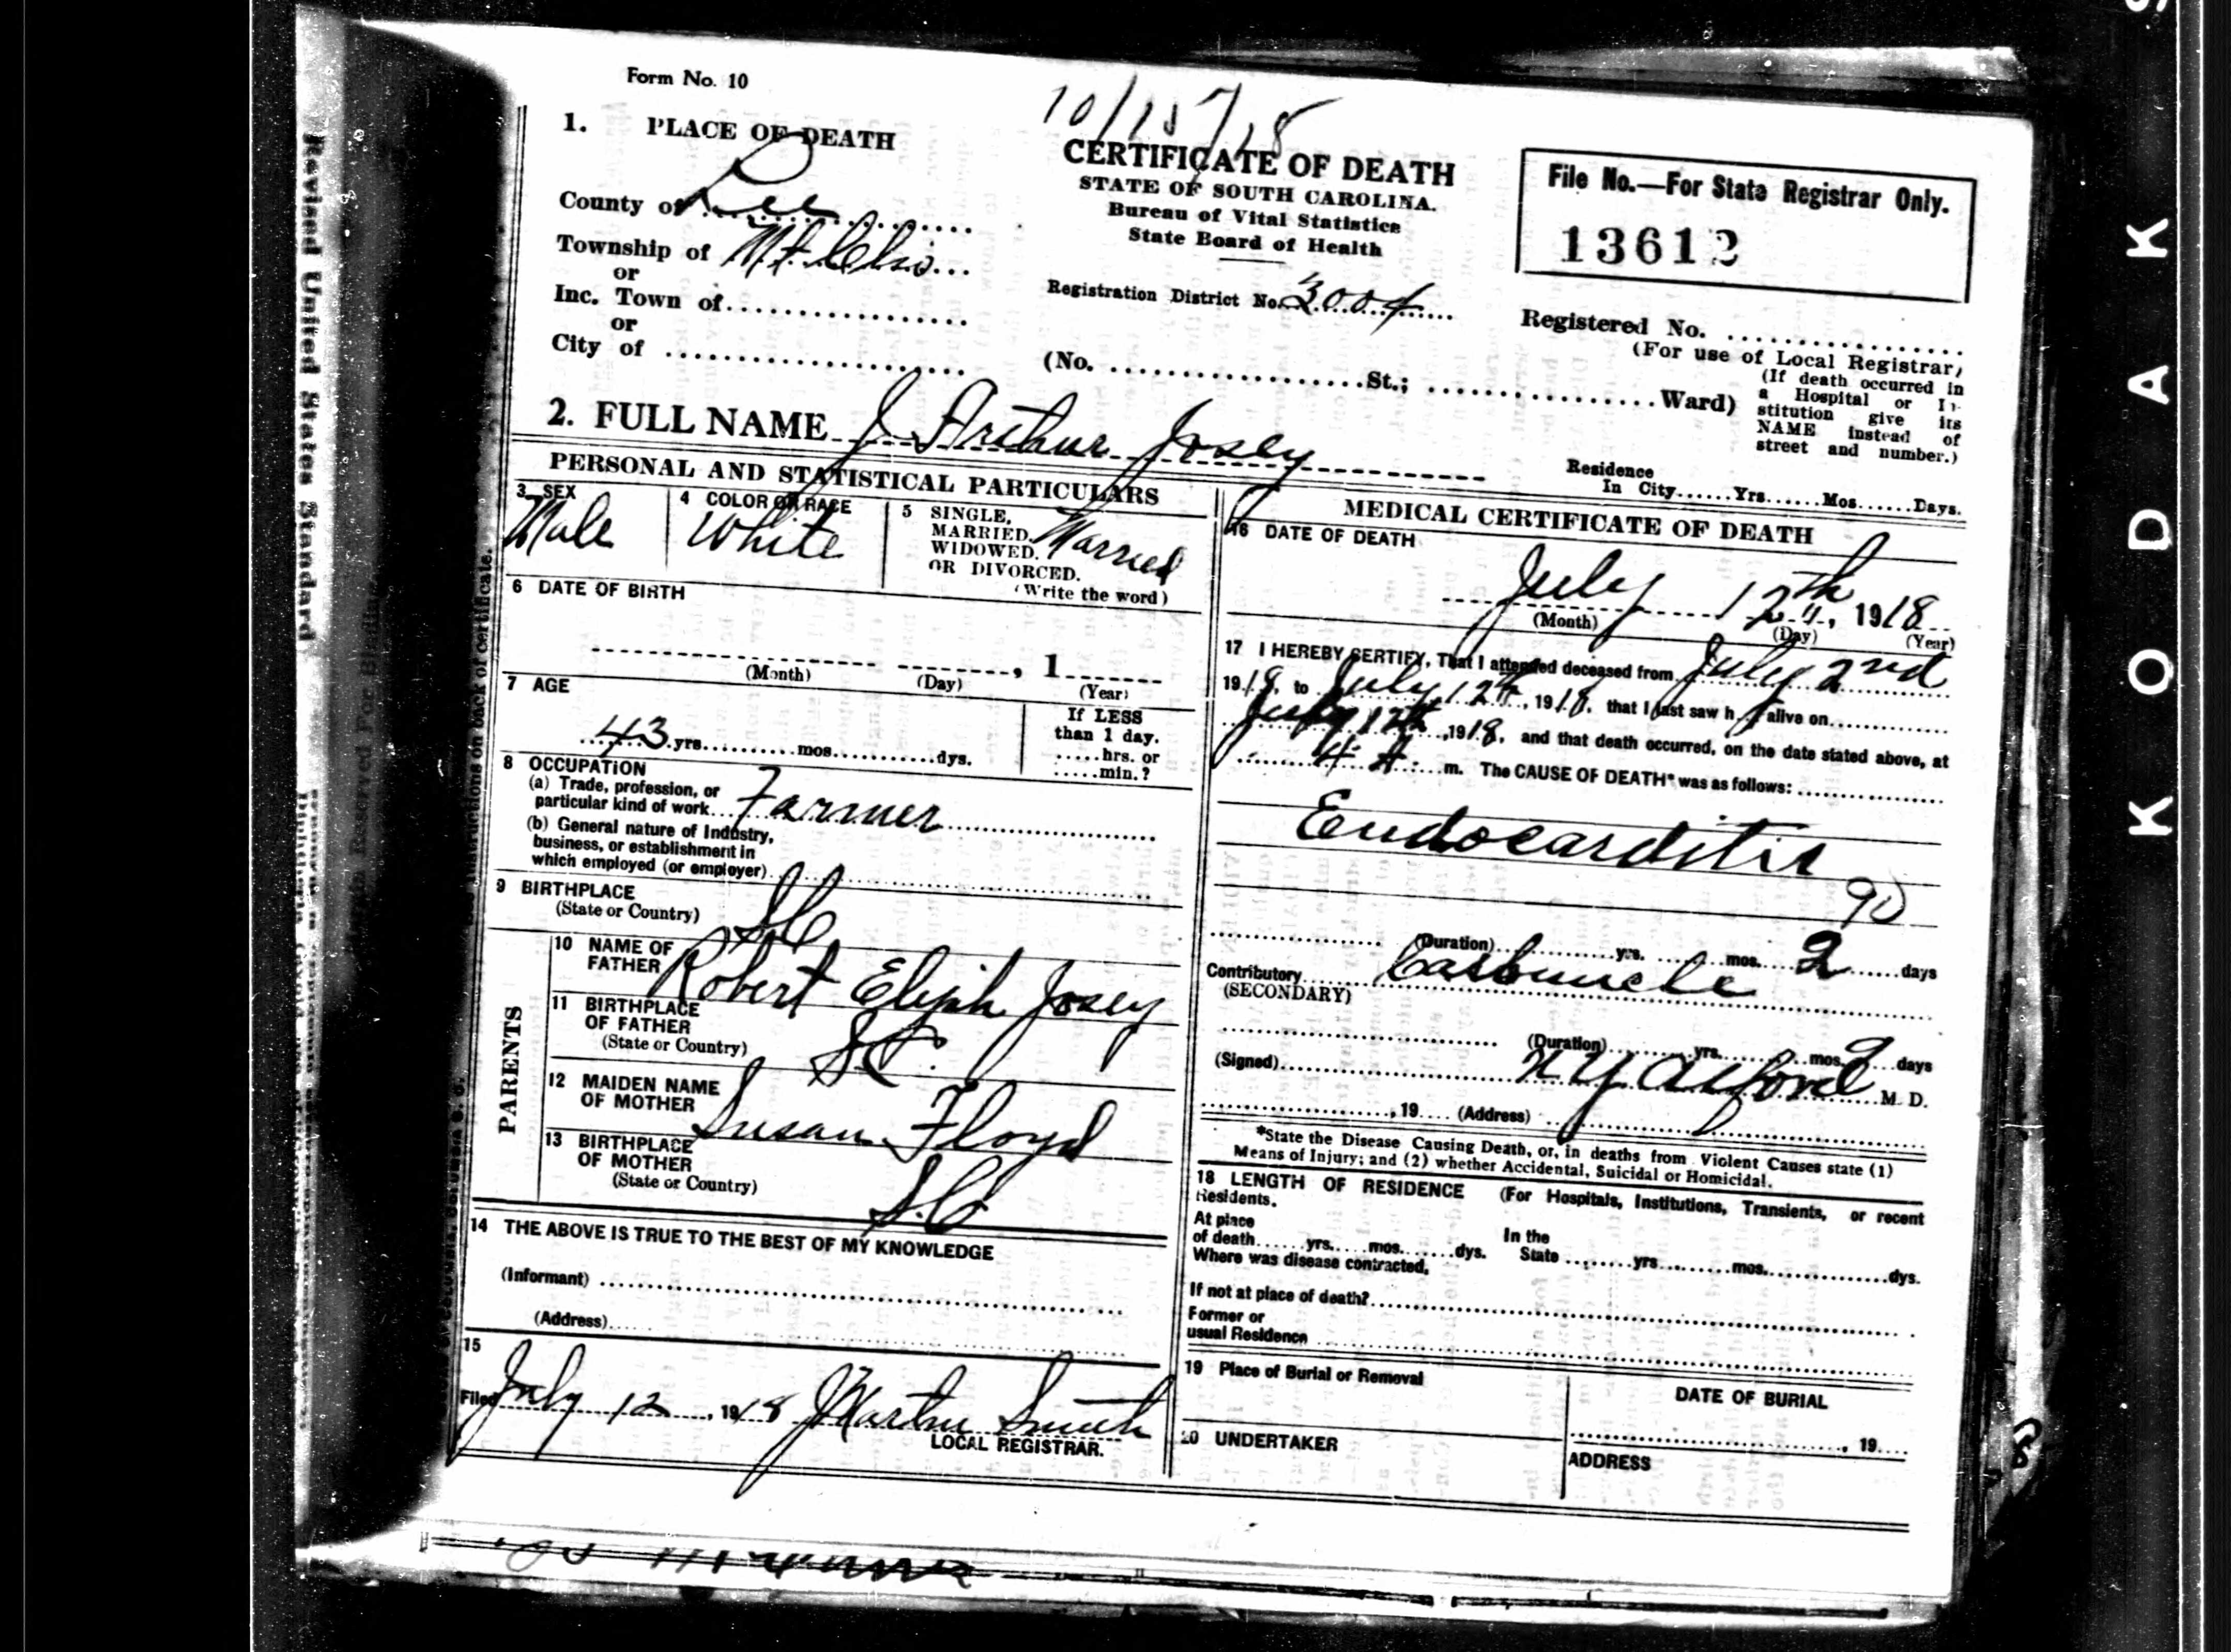 Form No. 10
10/15/18
1. PLACE OF DEATH
CERTIFICATE OF DEATH
STATE OF SOUTH CAROLINA.
Bureau of Vital Statistics
State Board of Health
File No.—For State Registrar Only.
13612
County of Lee
Township of Mt. Clio
or
Inc. Town of
or
City of
Registration District No. 3004
Registered No.
(For use of Local Registrar)
(No. St.; Ward)
(If death occurred in
a Hospital or In-
stitution give its
NAME instead of
street and number.)
2. FULL NAME J Arthur Josey
Residence
In City Yrs. Mos. Days.
PERSONAL AND STATISTICAL PARTICULARS
3 SEX
Male
4 COLOR OR RACE
White
5 SINGLE,
MARRIED,
WIDOWED,
OR DIVORCED.
Married
(Write the word)
6 DATE OF BIRTH
, 1
(Month) (Day) (Year)
7 AGE
43 yrs. mos. dys.
If LESS
than 1 day,
hrs. or
min.?
8 OCCUPATION
(a) Trade, profession, or
particular kind of work Farmer
(b) General nature of Industry,
business, or establishment in
which employed (or employer)
9 BIRTHPLACE
(State or Country) S C
PARENTS
10 NAME OF
FATHER Robert Elijah Josey
11 BIRTHPLACE
OF FATHER
(State or Country) S C.
12 MAIDEN NAME
OF MOTHER Susan Floyd
13 BIRTHPLACE
OF MOTHER
(State or Country) S. C
14 THE ABOVE IS TRUE TO THE BEST OF MY KNOWLEDGE
(Informant)
(Address)
15
Filed July 12, 1918 Smith
LOCAL REGISTRAR.
MEDICAL CERTIFICATE OF DEATH
16 DATE OF DEATH
July 12th, 1918
(Month) (Day) (Year)
17 I HEREBY CERTIFY, That I attended deceased from July 2nd
1918, to July 12th, 1918, that I last saw h alive on
July 12th, 1918, and that death occurred, on the date stated above, at
4 A m. The CAUSE OF DEATH* was as follows:
Endocarditis
90
(Duration) yrs. mos. 2 days
Contributory Carbuncle
(SECONDARY)
(Duration) yrs. mos. 9 days
(Signed) M. D.
, 19 (Address)
*State the Disease Causing Death, or, in deaths from Violent Causes state (1)
Means of Injury; and (2) whether Accidental, Suicidal or Homicidal.
18 LENGTH OF RESIDENCE (For Hospitals, Institutions, Transients, or recent
Residents.
At place
of death yrs. mos. dys.
In the
State yrs. mos. dys.
Where was disease contracted,
If not at place of death?
Former or
usual Residence
19 Place of Burial or Removal
DATE OF BURIAL
, 19
20 UNDERTAKER
ADDRESS
Revised United States Standard
instructions on back of certificate.
KODAK